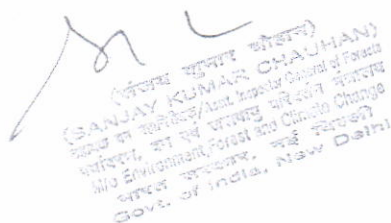 (संजय कुमार चौहान)
(SANJAY KUMAR CHAUHAN)
सहायक वन महानिरीक्षक/Asst. Inspector General of Forests
पर्यावरण, वन एवं जलवायु परिवर्तन मंत्रालय
M/o Environment, Forest and Climate Change
भारत सरकार, नई दिल्ली
Govt. of India, New Delhi